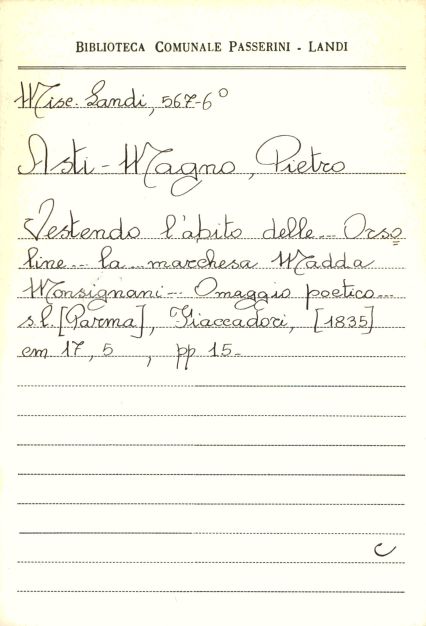 BIBLIOTECA COMUNALE PASSERINI - LANDI
Misc. Landi, 567-6°
Asti - Magno, Pietro
Vestendo l'abito delle... Orso
line... la... marchesa Madda
Monsignani... Omaggio poetico...
s.l. [Parma], Fiaccadori, [1835]
cm 17,5 , pp 15-
C